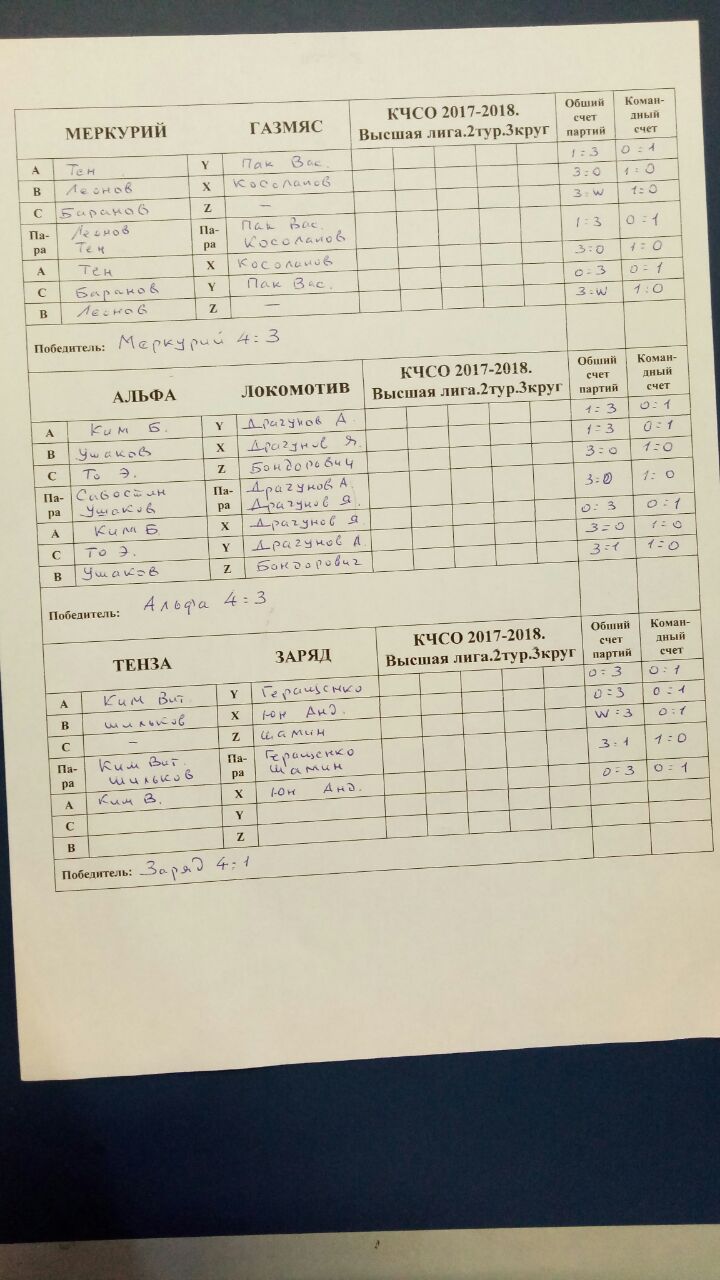 МЕРКУРИЙ ГАЗМЯС КЧСО 2017-2018. Высшая лига.2тур.3круг Обший счет партий Коман-дный счет
A Тен Y Пак Вас. 1:3 0:1
B Леонов X Косолапов 3:0 1:0
C Баранов Z — 3:W 1:0
Па-ра Леонов Тен Па-ра Пак Вас. Косолапов 1:3 0:1
A Тен X Косолапов 3:0 1:0
C Баранов Y Пак Вас. 0:3 0:1
B Леонов Z — 3:W 1:0
Победитель: Меркурий 4:3
АЛЬФА ЛОКОМОТИВ КЧСО 2017-2018. Высшая лига.2тур.3круг Обший счет партий Коман-дный счет
A Ким Б. Y Драгунов А. 1:3 0:1
B Ушаков X Драгунов Я. 1:3 0:1
C То Э. Z Бондорович 3:0 1:0
Па-ра Савостин Ушаков Па-ра Драгунов А. Драгунов Я. 3:0 1:0
A Ким Б. X Драгунов Я. 0:3 0:1
C То Э. Y Драгунов А. 3:0 1:0
B Ушаков Z Бондорович 3:1 1:0
Победитель: Альфа 4:3
ТЕНЗА ЗАРЯД КЧСО 2017-2018. Высшая лига.2тур.3круг Обший счет партий Коман-дный счет
A Ким Вит. Y Геращенко 0:3 0:1
B Шильков X Юн Анд. 0:3 0:1
C — Z Шамин W:3 0:1
Па-ра Ким Вит. Шильков Па-ра Геращенко Шамин 3:1 1:0
A Ким В. X Юн Анд. 0:3 0:1
C Y
B Z
Победитель: Заряд 4:1